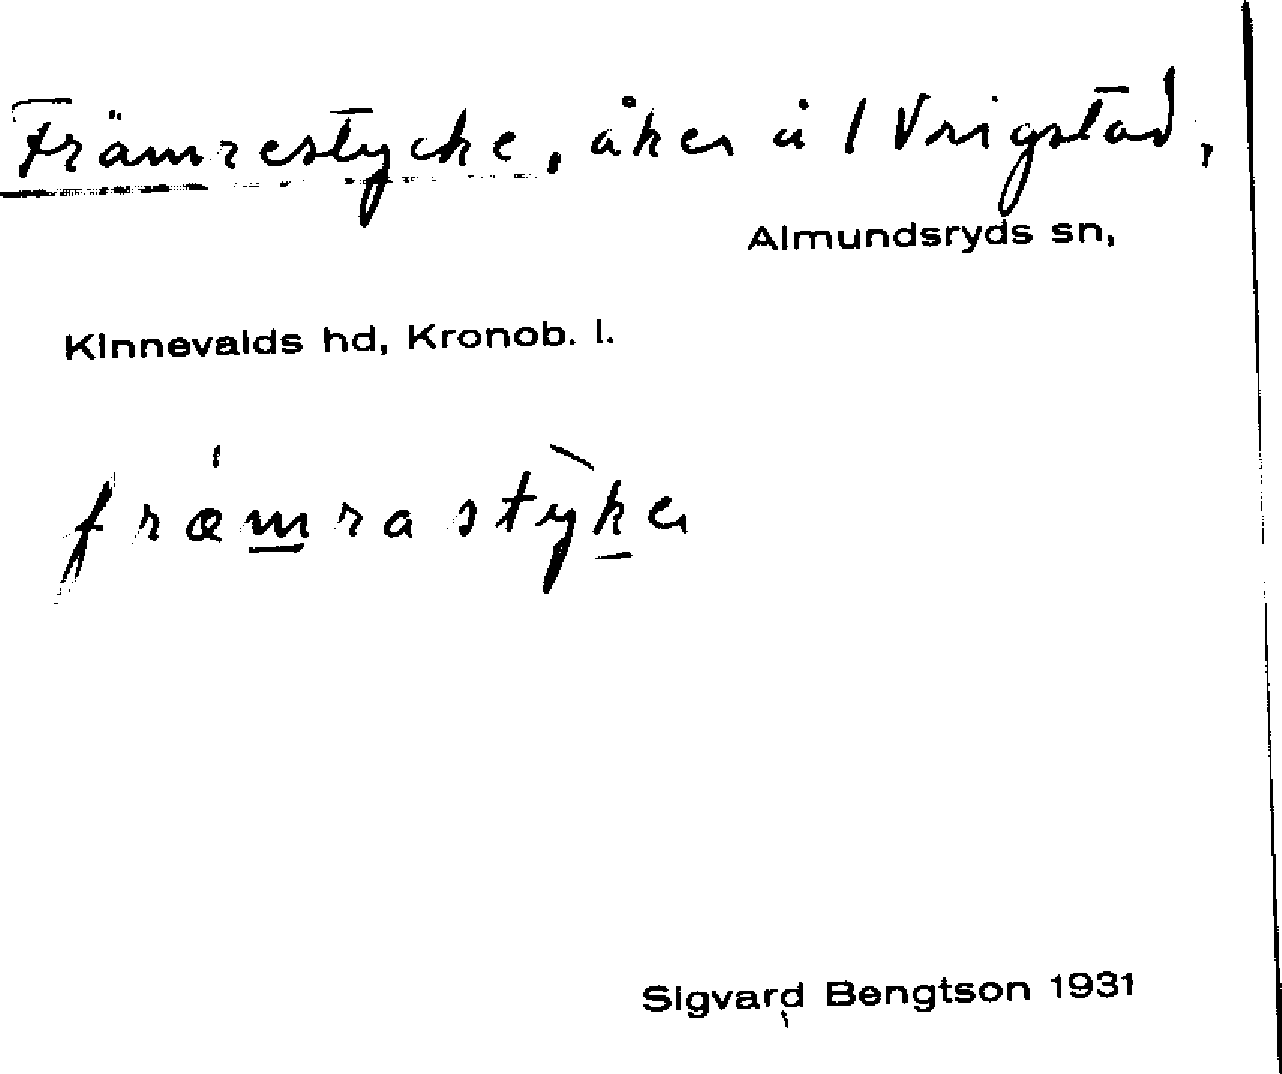 Främrestycke, åker å 1 Vrigstad,
Almundsryds sn,
Kinnevalds hd, Kronob. l.
fræmra stỳke
Sigvard Bengtson 1931